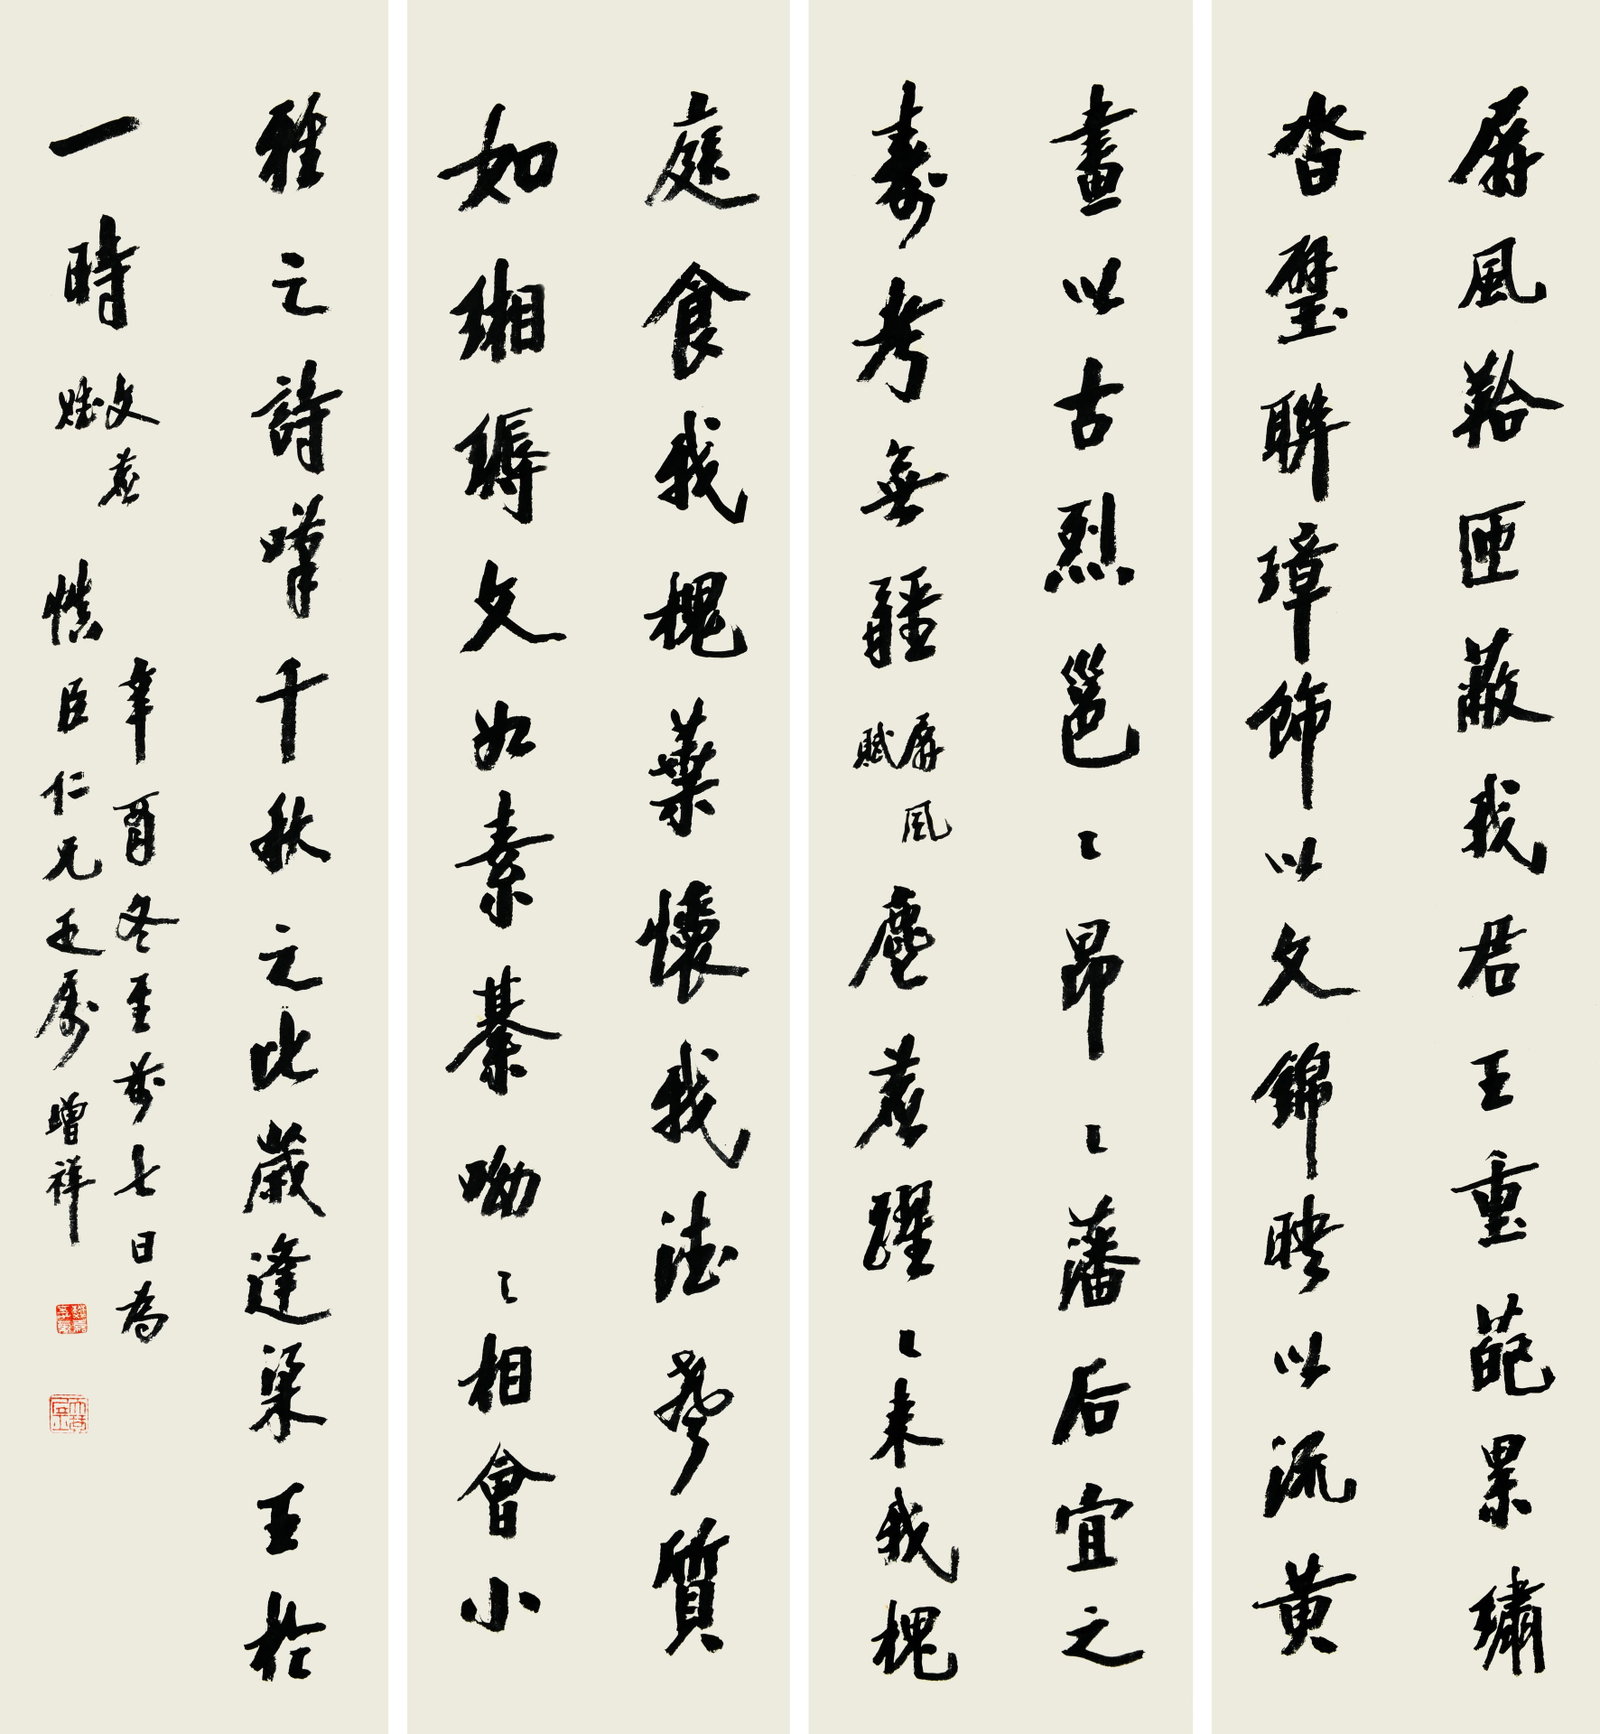 屏風鞈匝蔽我君王重葩累繡
沓璧聯璋飾以文錦映以流黃
畫以古烈邕〻昂〻藩后宜之
壽考無疆 屏風賦 麀鹿躍〻來我槐
庭食我槐葉懷我德聲質
如緗縟文如素綦呦〻相會小
雅之詩嘆千秋之比歲逢梁王於
一時 文鹿賦
辛酉冬至前七日為
慎臣仁兄正屬 增祥